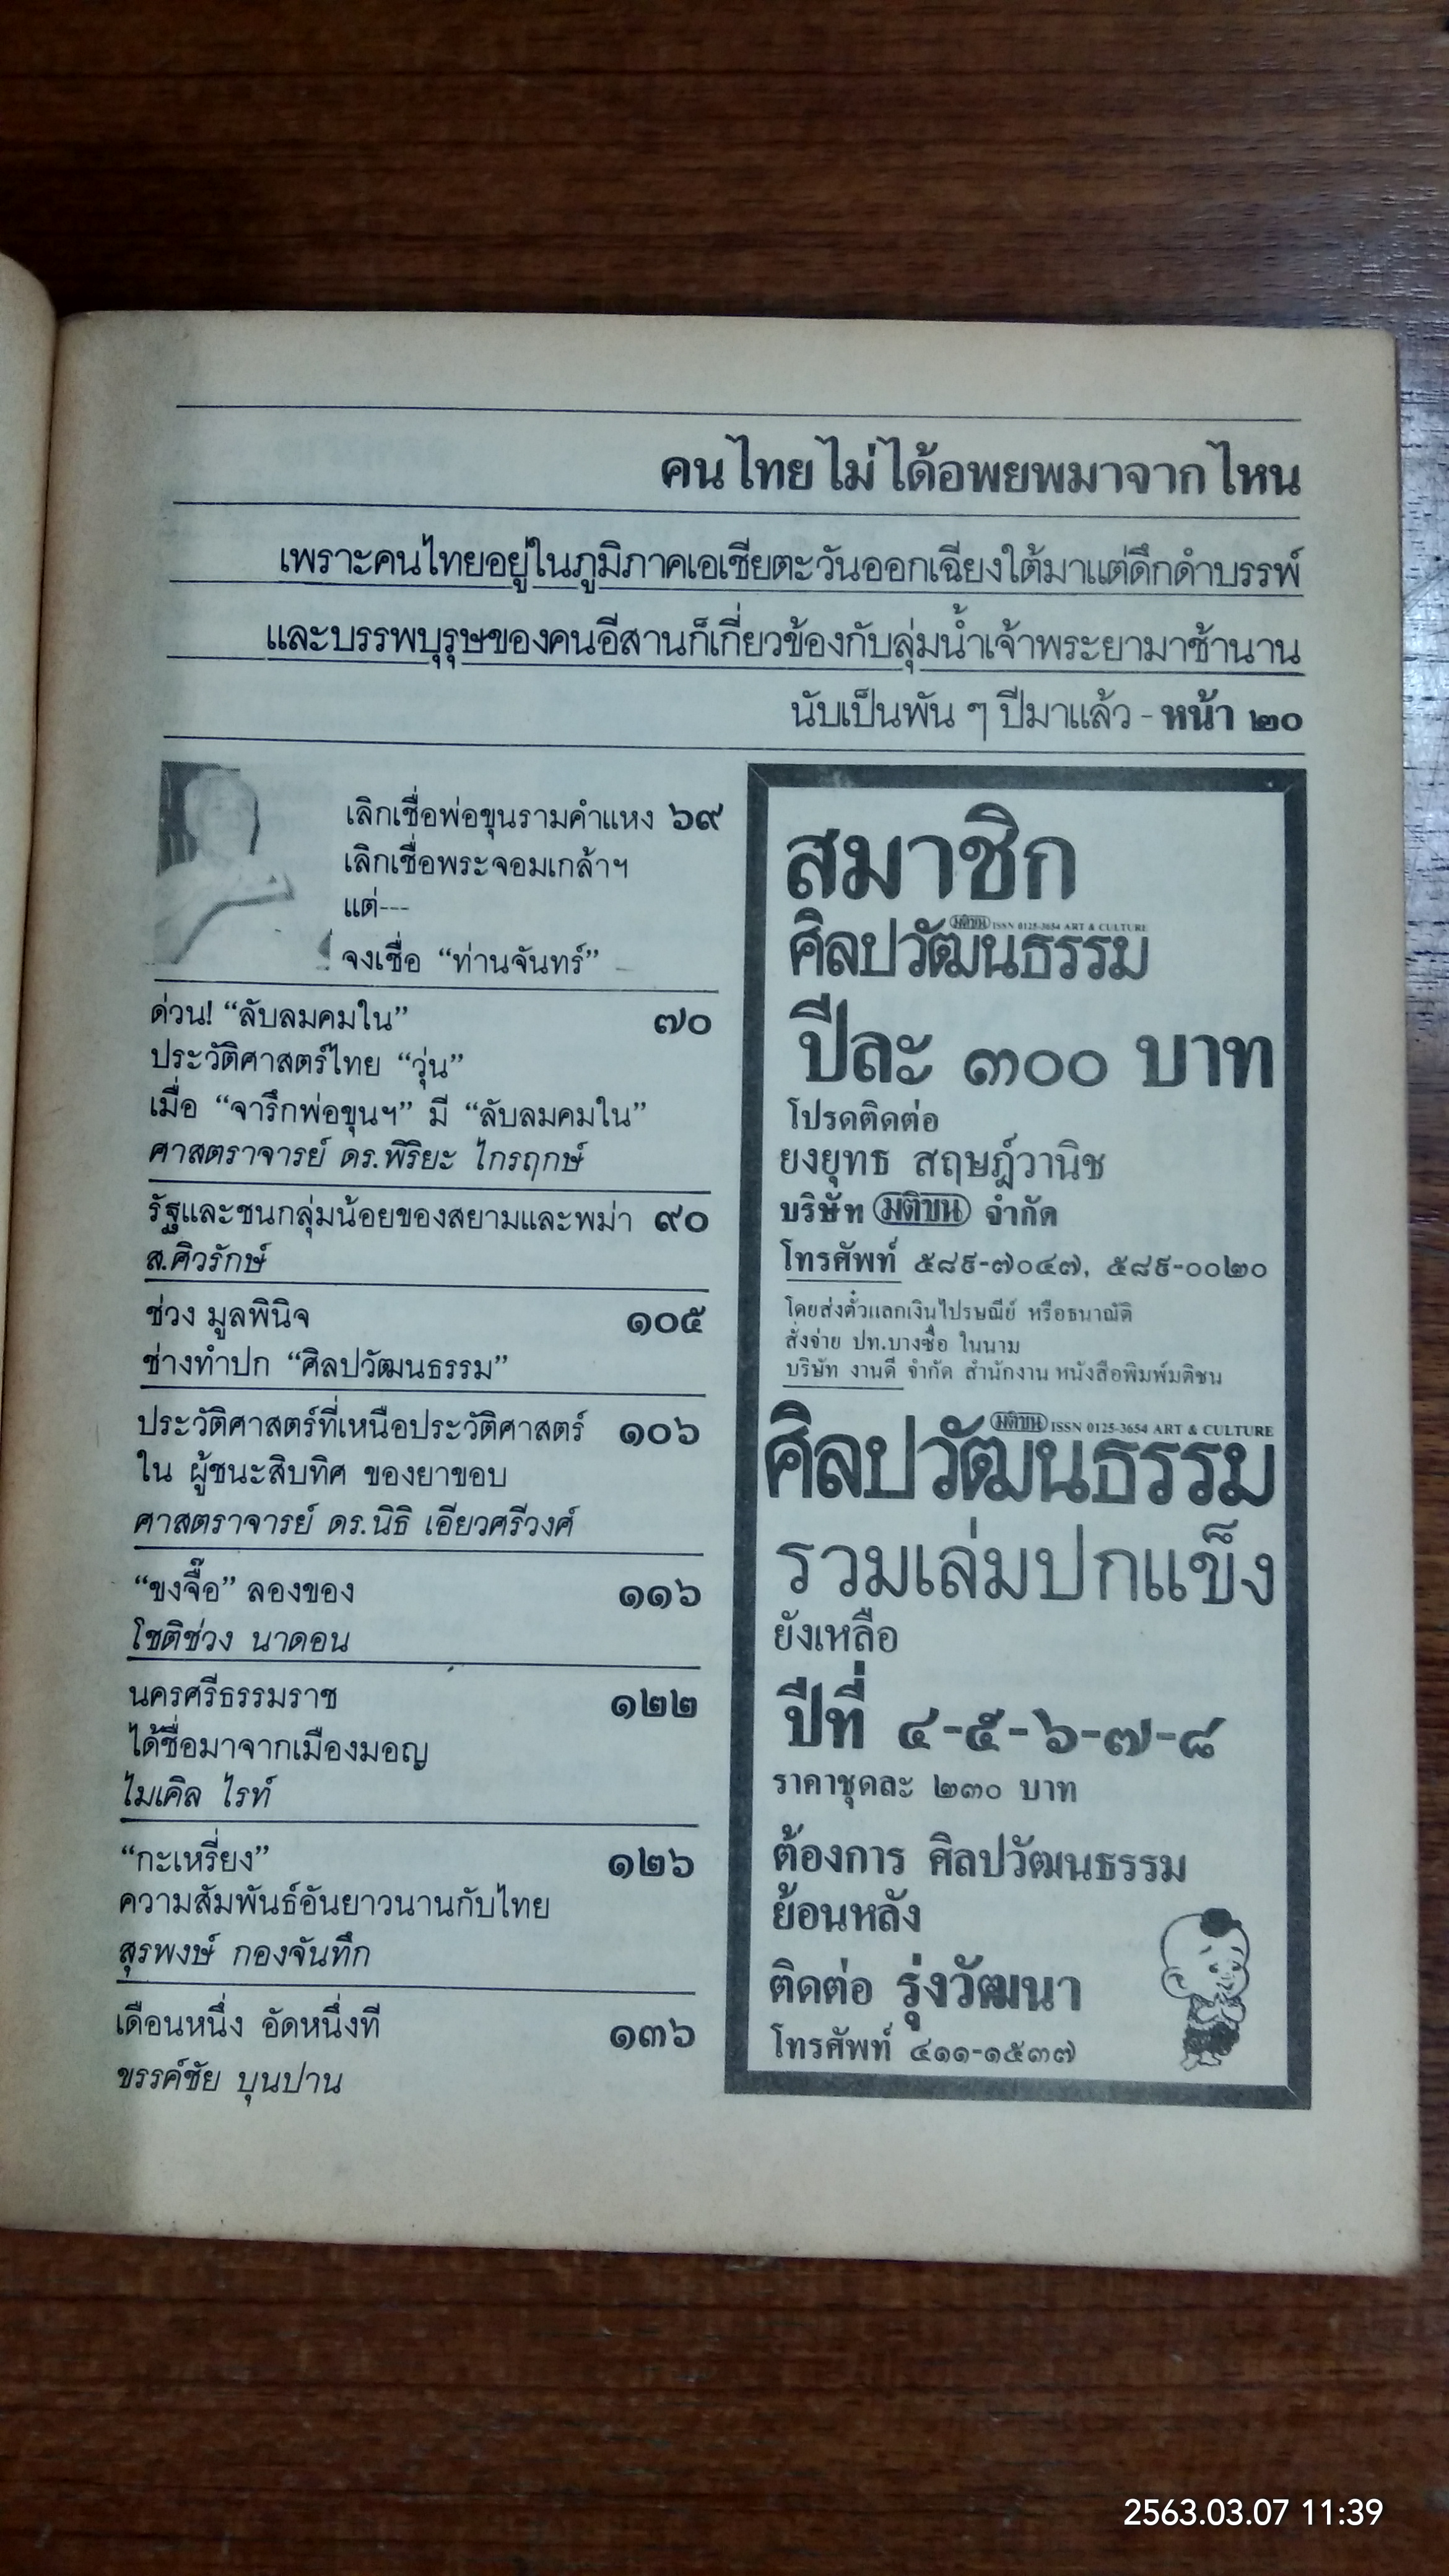 คนไทยไม่ได้อพยพมาจากไหน
เพราะคนไทยอยู่ในภูมิภาคเอเชียตะวันออกเฉียงใต้มาแต่ดึกดำบรรพ์
และบรรพบุรุษของคนอีสานก็เกี่ยวข้องกับลุ่มน้ำเจ้าพระยามาช้านาน
นับเป็นพัน ๆ ปีมาแล้ว - หน้า ๒๐
เลิกเชื่อพ่อขุนรามคำแหง ๖๙
เลิกเชื่อพระจอมเกล้าฯ
แต่---
จงเชื่อ “ท่านจันทร์”
ด่วน! “ลับลมคมใน” ๗๐
ประวัติศาสตร์ไทย “วุ่น”
เมื่อ “จารึกพ่อขุนฯ” มี “ลับลมคมใน”
ศาสตราจารย์ ดร.พิริยะ ไกรฤกษ์
รัฐและชนกลุ่มน้อยของสยามและพม่า ๙๐
ส.ศิวรักษ์
ช่วง มูลพินิจ ๑๐๕
ช่างทำปก “ศิลปวัฒนธรรม”
ประวัติศาสตร์ที่เหนือประวัติศาสตร์ ๑๐๖
ใน ผู้ชนะสิบทิศ ของยาขอบ
ศาสตราจารย์ ดร.นิธิ เอียวศรีวงศ์
“ขงจื๊อ” ลองของ ๑๑๖
โชติช่วง นาดอน
นครศรีธรรมราช ๑๒๒
ได้ชื่อมาจากเมืองมอญ
ไมเคิล ไรท์
“กะเหรี่ยง” ๑๒๖
ความสัมพันธ์อันยาวนานกับไทย
สุรพงษ์ กองจันทึก
เดือนหนึ่ง อัดหนึ่งที ๑๓๖
ขรรค์ชัย บุนปาน
สมาชิก
มติชน ISSN 0125-3654 ART & CULTURE
ศิลปวัฒนธรรม
ปีละ ๓๐๐ บาท
โปรดติดต่อ
ยงยุทธ สฤษฎ์วานิช
บริษัท มติชน จำกัด
โทรศัพท์ ๕๘๙-๗๐๔๗, ๕๘๙-๐๐๒๐
โดยส่งตั๋วแลกเงินไปรษณีย์ หรือธนาณัติ
สั่งจ่าย ปท.บางซื่อ ในนาม
บริษัท งานดี จำกัด สำนักงาน หนังสือพิมพ์มติชน
มติชน ISSN 0125-3654 ART & CULTURE
ศิลปวัฒนธรรม
รวมเล่มปกแข็ง
ยังเหลือ
ปีที่ ๔-๕-๖-๗-๘
ราคาชุดละ ๒๓๐ บาท
ต้องการ ศิลปวัฒนธรรม
ย้อนหลัง
ติดต่อ รุ่งวัฒนา
โทรศัพท์ ๔๑๑-๑๕๓๗
2563.03.07 11:39